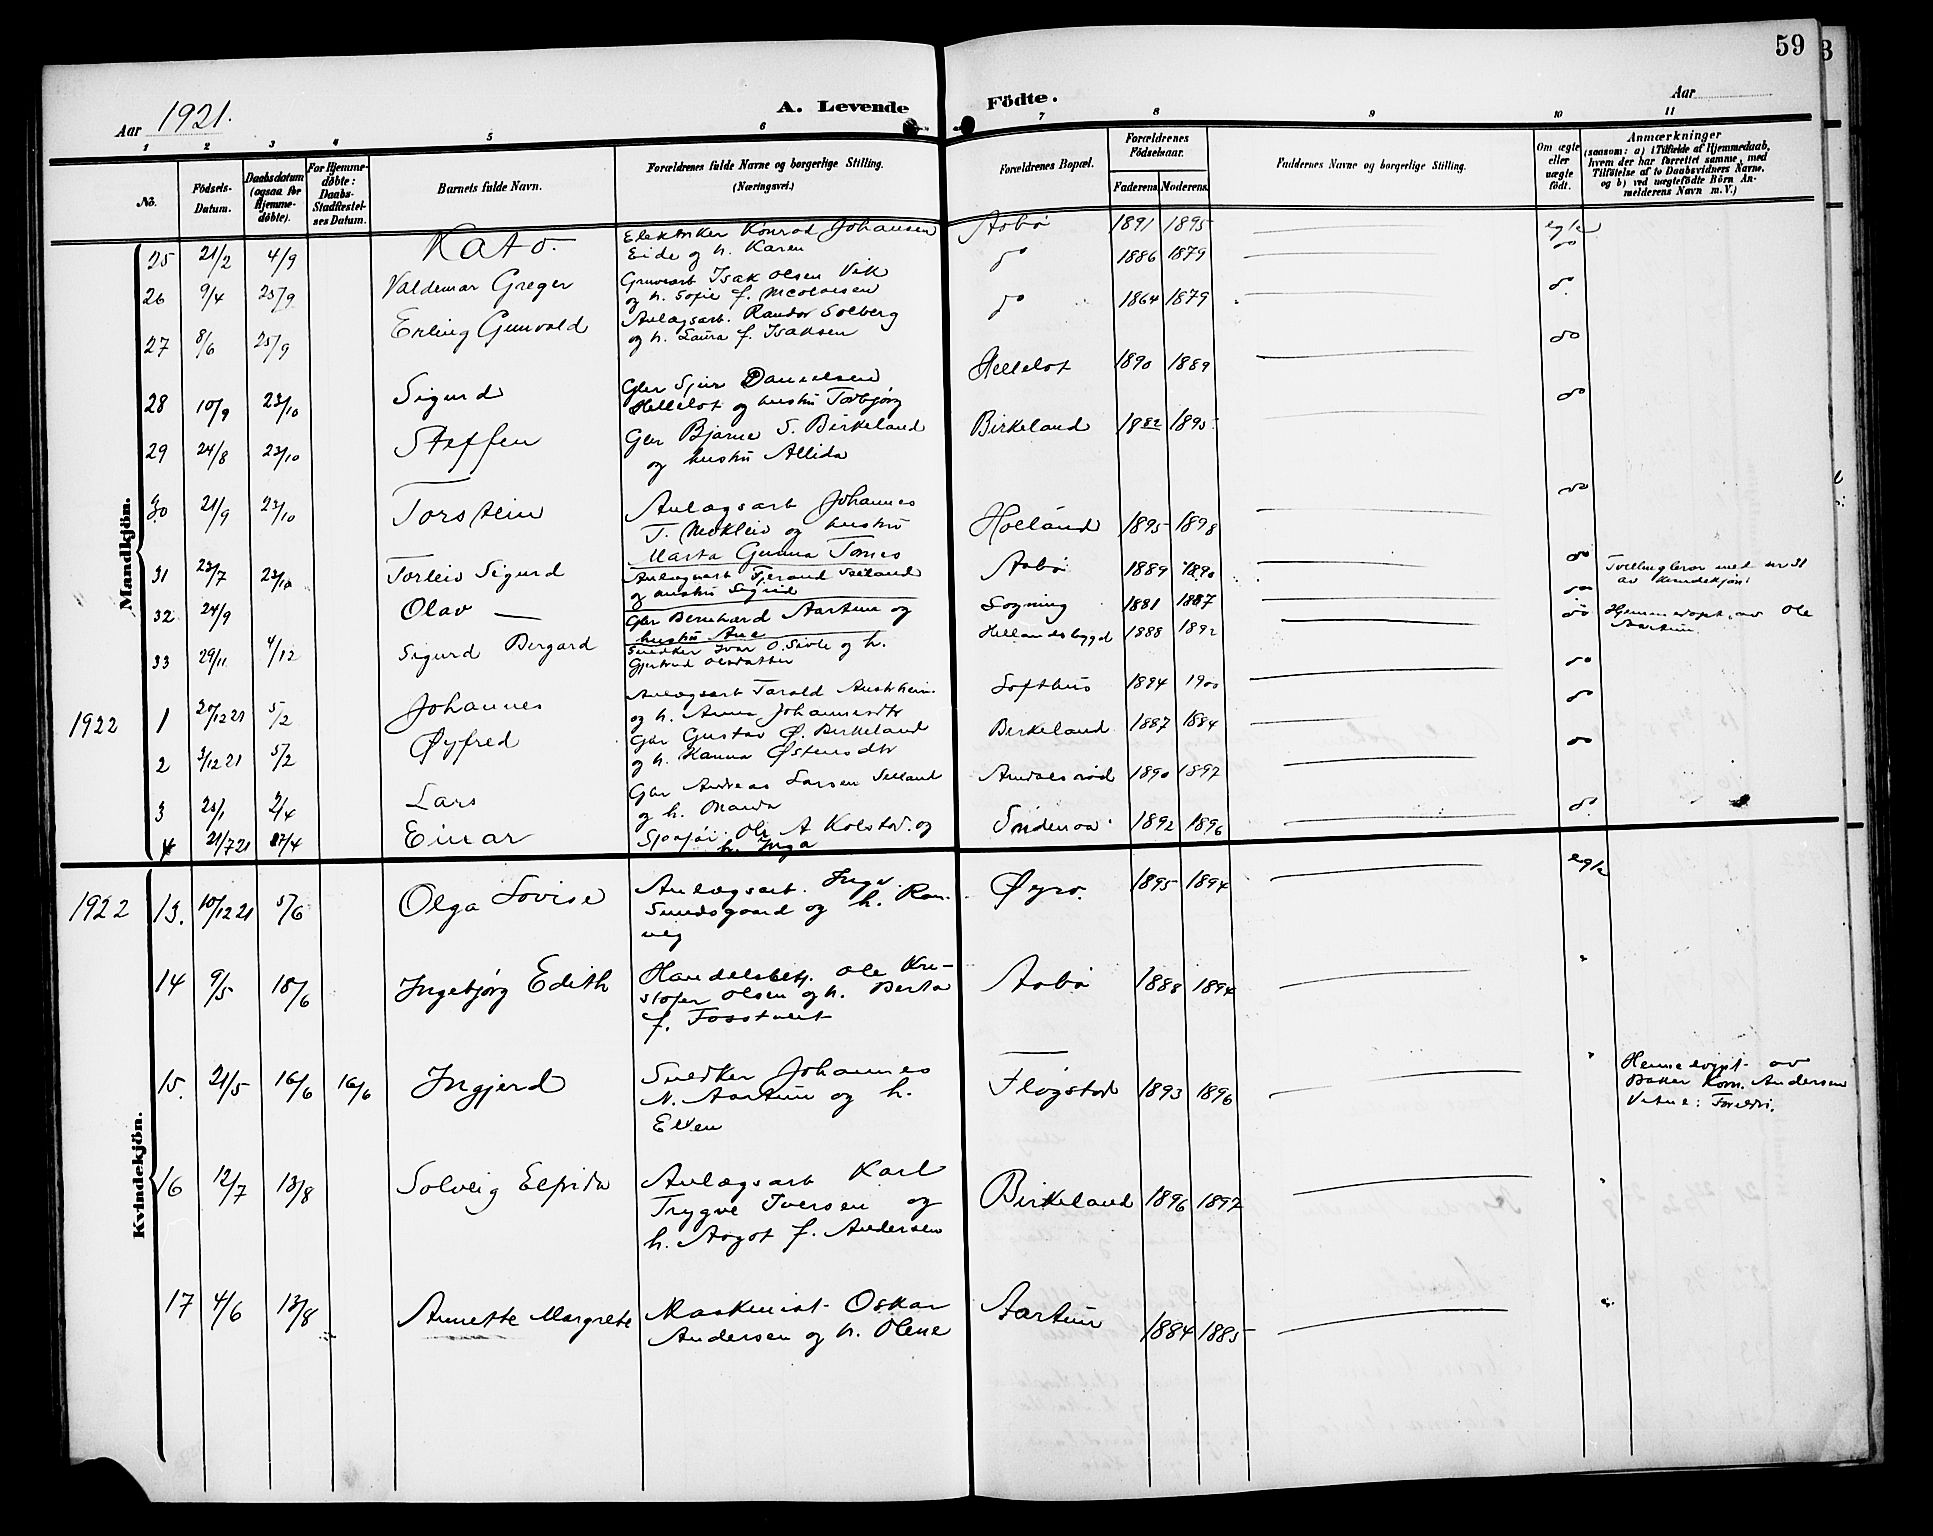 59
Aar 1921.
A. Levende Födte.
Aar
1 2 3 4 5 6 7 8 9 10 11
No.
Födsels-Datum.
Daabsdatum (ogsaa for Hjemme-döbte).
For Hjemme-döbte: Daabs-Stadfæstel-ses Datum.
Barnets fulde Navn.
Forældrenes fulde Navne og borgerlige Stilling. (Næringsvei.)
Forældrenes Bopæl.
Forældrenes Födselsaar.
Faderens. Moderens.
Faddernes Navne og borgerlige Stilling.
Om ægte eller uægte födt.
Anmærkninger
(saasom: a) i Tilfælde af Hjemmedaab, hvem der har forrettet samme, med Tilföielse af to Daabsvidners Navne, og b) ved uægtefödte Börn An-melderens Navn m. V.)
Mandkjön.
25 21/2 4/9 Kato Elektriker Konrad Johansen Aabø 1891 1895 egte
Eide og h. Karen
26 9/4 25/9 Valdemar Greger Gruvearb Isak Olsen Vik do 1886 1879 do
og h. Sofie f. Nicolaisen
27 8/6 25/9 Erling Gunvald Anlægsarb. Randor Solberg do 1864 1879 do
og h. Laura f. Isaksen
28 10/9 23/10 Sigurd Gbr Sjur Danielsen Helleløt 1890 1889 do
Helleløt og hustru Torbjørg
29 24/8 23/10 Steffen Gbr Bjarne S. Birkeland Birkeland 1882 1895 do
og hustru Allida
30 21/9 23/10 Torstein Anlægsarb Johannes Holland 1895 1898 do
T. Mokleiv og hustru
Marta Gunna Tones
31 23/7 23/10 Torleiv Sigurd Anlægsarb Seland Aabø 1889 1890 do Tvillingbror med nr 31
og hustru Sigrid av kvindekjøn
32 24/9 Olav Gbr Bernhard Aartun og Sogning 1881 1887 do Hjemmedøpt av Ole
hustru Ane Aartun.
33 29/11 4/12 Sigurd Bergard Snedker Ivar O. Sivle og h. Hellandsbygd 1888 1892 do
Gjertrud Olsdatter
1922 1 20/12 21 5/2 Johannes Anlægsarb Tarald Austrheim Lofthus 1894 1900 do
og h. Anna Johannesdtr
2 3/12 21 5/2 Øyfred Gbr Gustav Ø. Birkeland Birkeland 1887 1884 do
og h. Hanna Østensdtr
3 25/1 2/4 Lars Gbr Andreas Larsen Selland 1890 1897 do
og h. Marta
4 21/7 21 17/4 Einar Ole A Kolstø og Søndenaa 1892 1896 do
h. Inga
Kvindekjön.
1922 13. 10/12 21 5/6 Olga Lovise Anlægsarb. Inge Øyro. 1895 1894 egte
Sundsgaard og h. Ran-
veig
14 9/5 18/6 Ingebjørg Edith Handelsbetj. Ole Kri- Aabø 1888 1894 "
stofer Olsen og h. Berta
f. Fosstveit
15. 21/5 16/6 16/6 Ingjerd Snedker Johannes Fløgstad 1893 1896 " Hemmedøpt av
N. Aartun og h. Baker Korn. Andersen
Ellen Vitne: Foreldri.
16 12/7 13/8 Solveig Elfrida Anlægsarb Karl Birkeland 1896 1897 "
Trygve Iversen og
h. Aagot f. Andersen
17 4/6 13/8 Annette Margrete Maskinist Oskar Aartun 1884 1885 "
Andersen og h. Olene